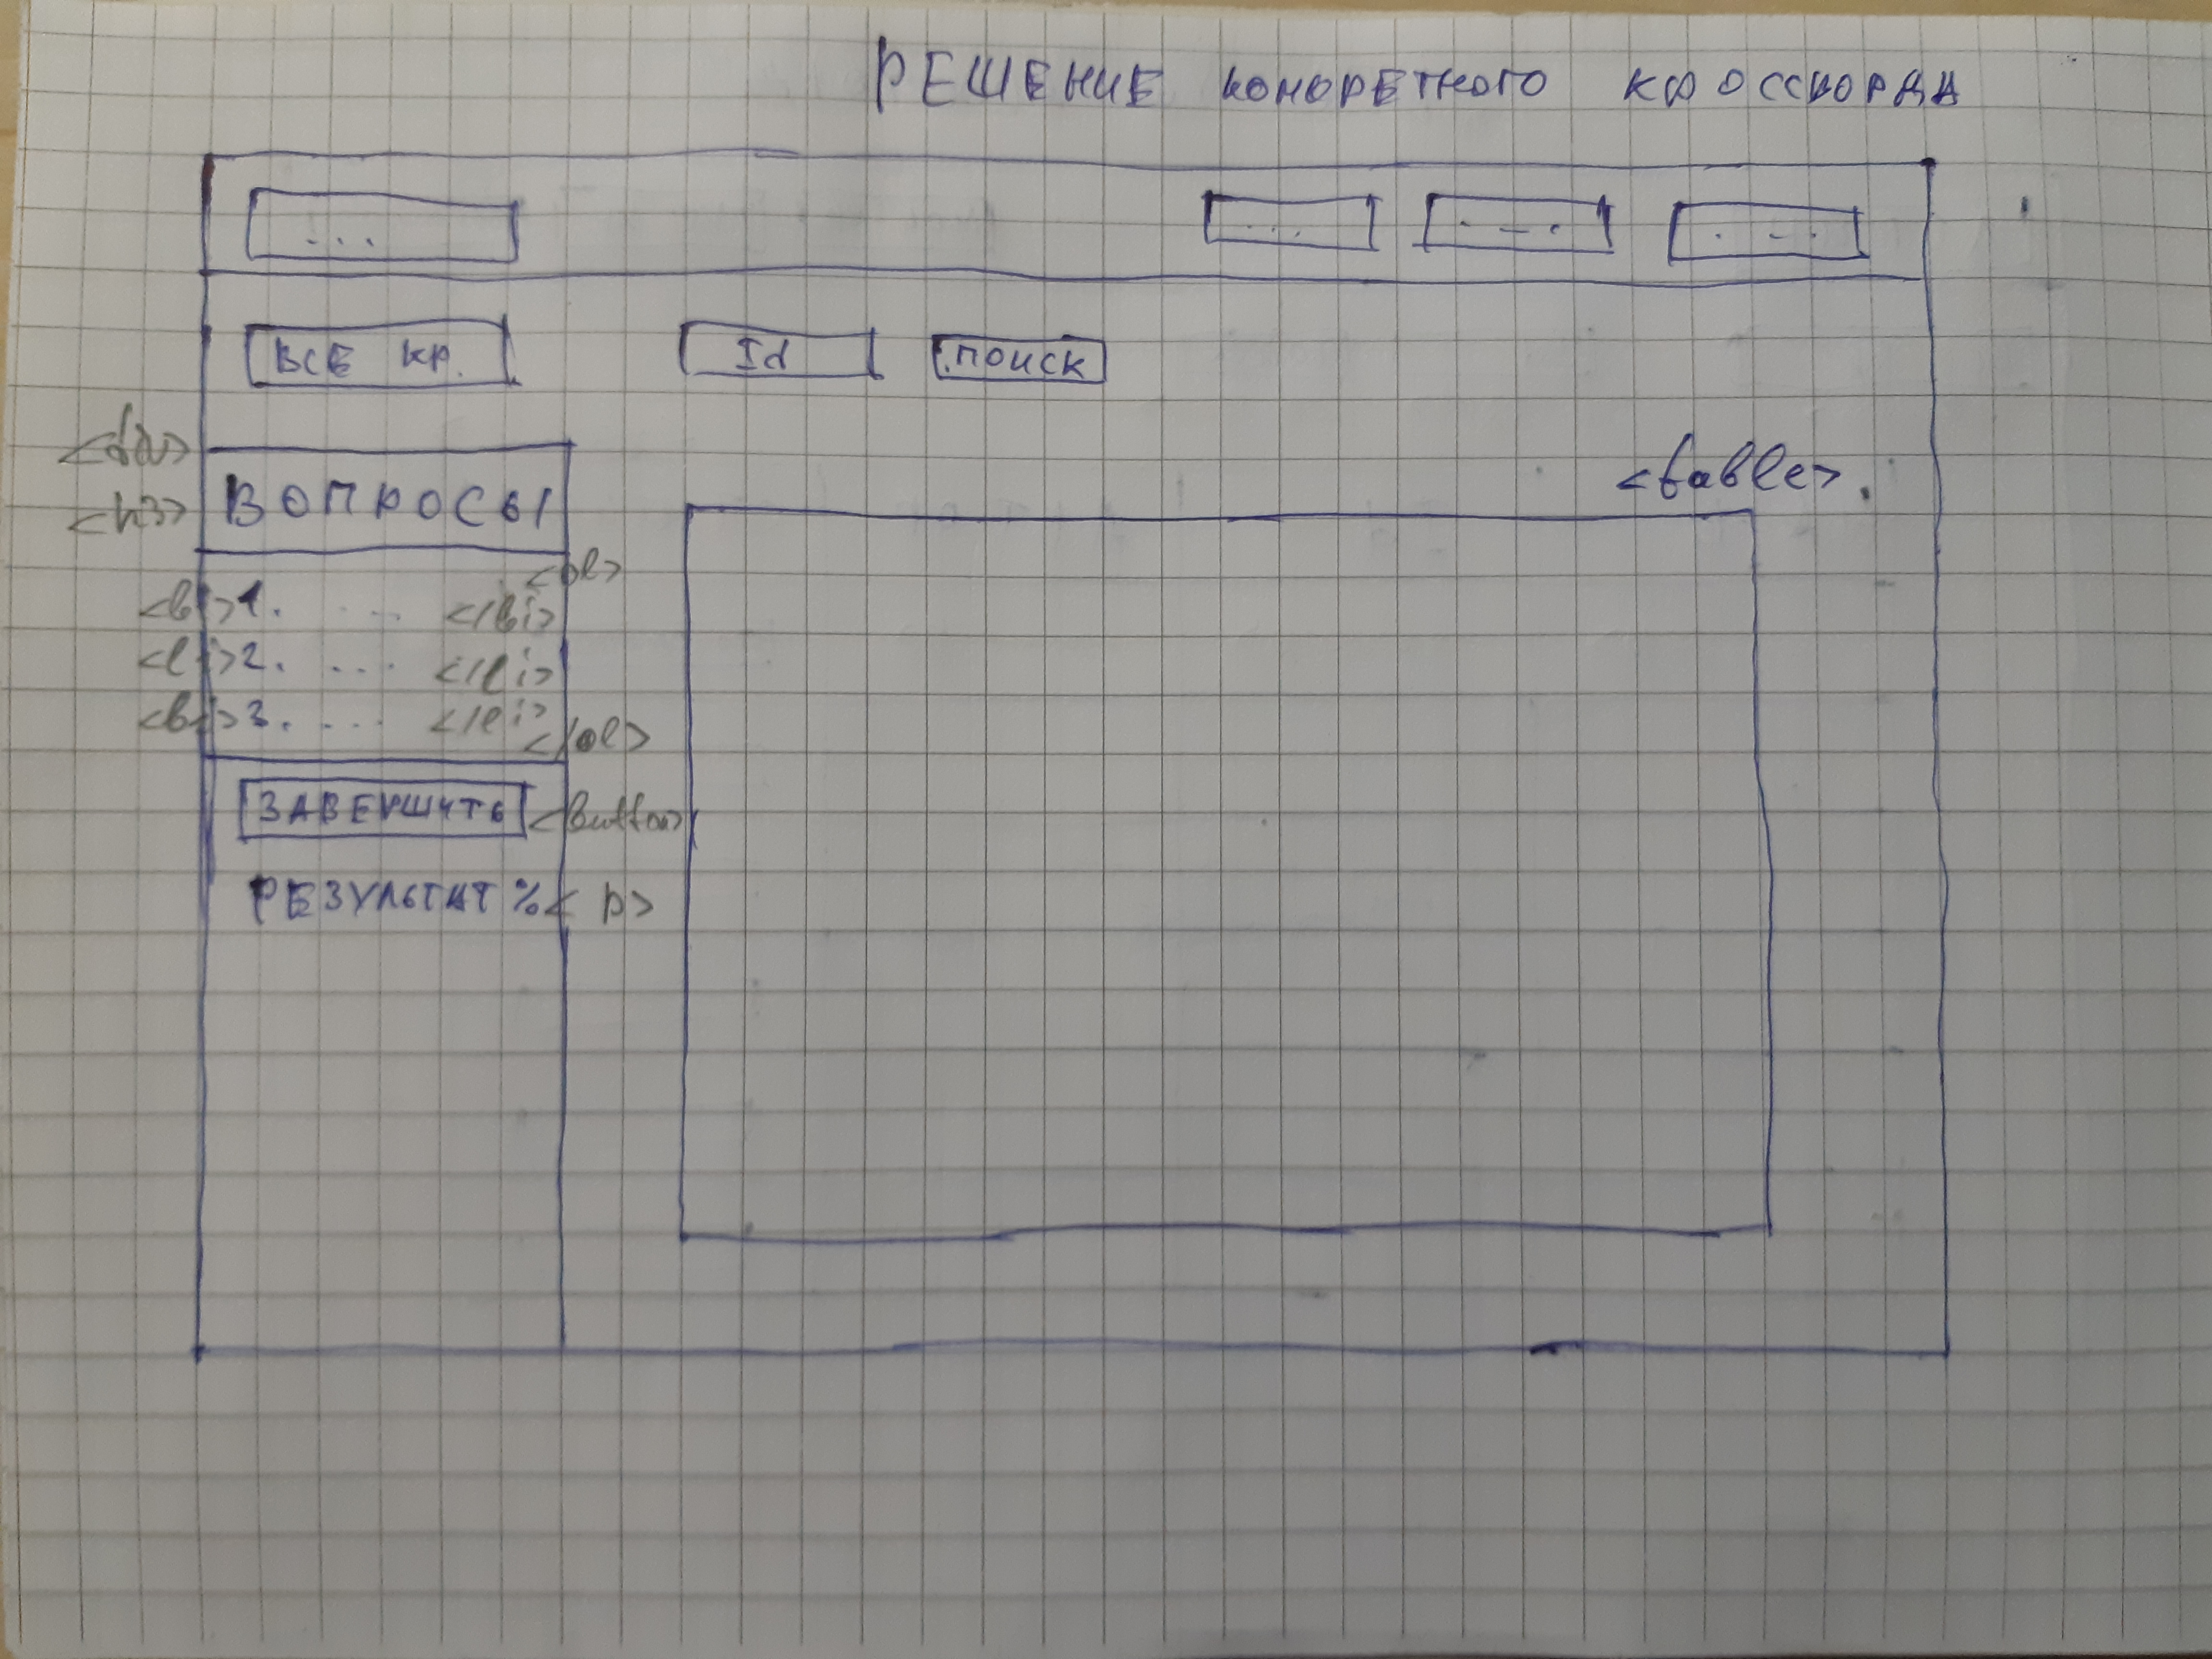 РЕШЕНИЕ КОНКРЕТНОГО КРОССВОРДА
...
... ... ...
ВСЕ КР. Id ПОИСК
<div>
<table>
<h3> ВОПРОСЫ
<ol>
<li>1. ... </li>
<li>2. ... </li>
<li>3. ... </li>
</ol>
ЗАВЕРШИТЬ <button>
РЕЗУЛЬТАТ % <p>